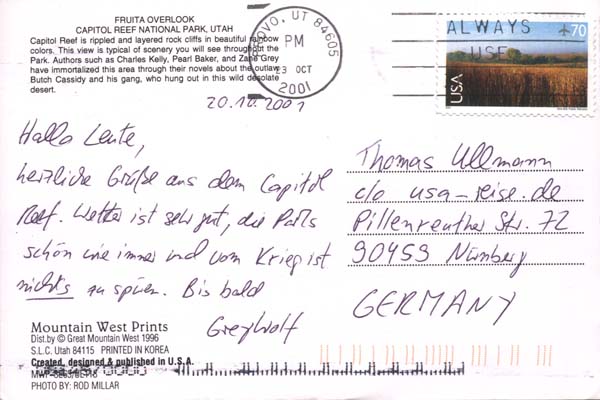 FRUITA OVERLOOK
CAPITOL REEF NATIONAL PARK, UTAH
Capitol Reef is rippled and layered rock cliffs in beautiful rainbow
colors. This view is typical of scenery you will see throughout the
Park. Authors such as Charles Kelly, Pearl Baker, and Zane Grey
have immortalized this area through their novels about the outlaw
Butch Cassidy and his gang, who hung out in this wild desolate
desert.
PROVO, UT 84605
PM
OCT
2001
ALWAYS
USE
70
USA
20.10.2001
Hallo Leute,
herzliche Grüße aus dem Capitol
Reef. Wetter ist sehr gut, die Parks
schön wie immer und vom Krieg ist
nichts zu spüren. Bis bald
GreyWolf
Thomas Ullmann
c/o usa-reise.de
Pillenreuther Str. 72
90459 Nürnberg
GERMANY
Mountain West Prints
Dist.by © Great Mountain West 1996
S.L.C. Utah 84115 PRINTED IN KOREA
Created, designed & published in U.S.A.
PHOTO BY: ROD MILLAR